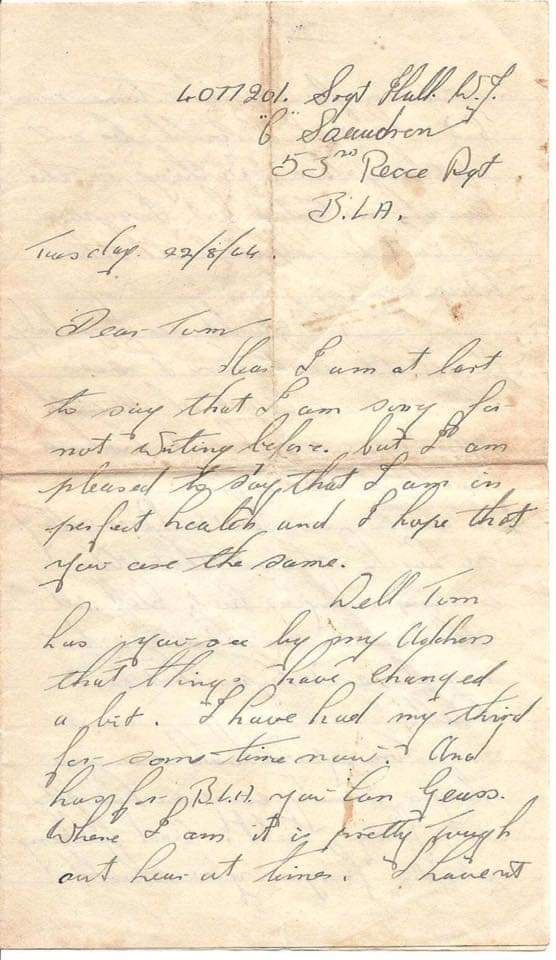 4077201. Sergt Hull. W.J.
"C" Saqudron
53rd Recce Rgt
B.L.A.
Tuesday. 22/8/44.
Dear Tom
Hear I am at last
to say that I am sorry for
not writing before. but I am
pleased to say that I am in
perfect health and I hope that
you are the same.
Well Tom
has you see by my Address
that things have changed
a bit. I have had my third
for some time now. And
has for B.L.A. you can Geuss.
Where I am it is pretty Tough
out hear at times. I havent